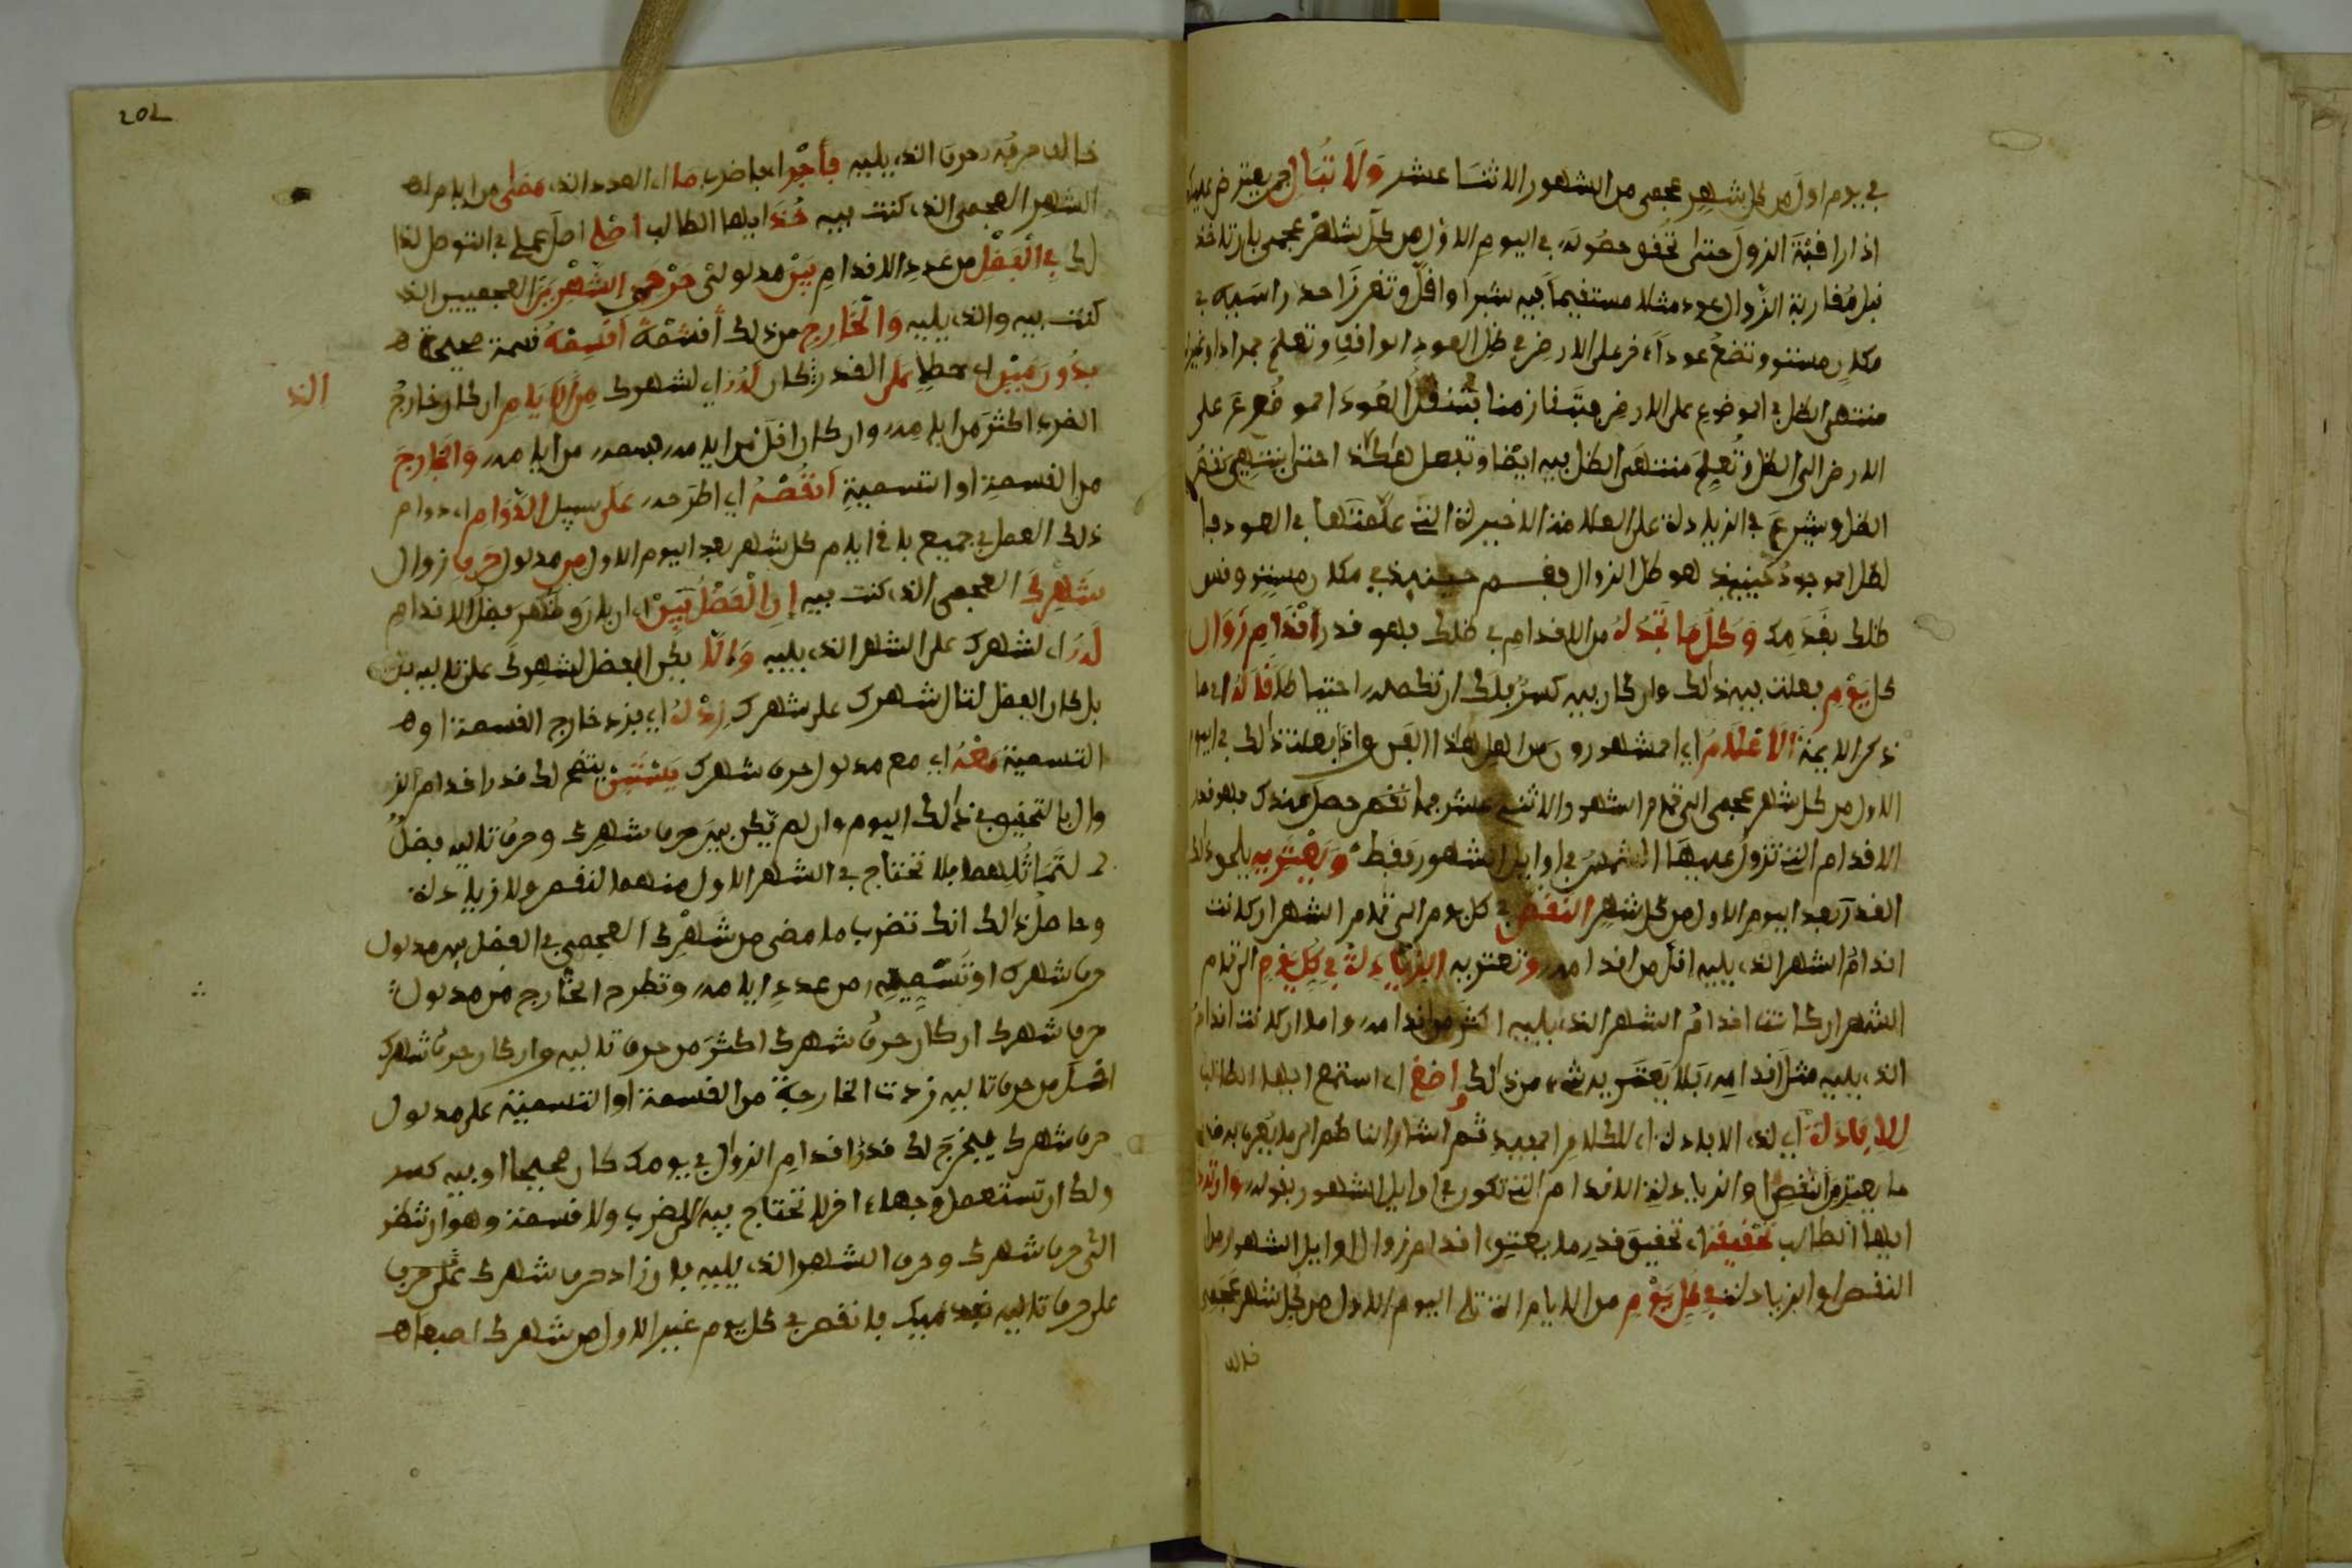 في يوم اول من كل شهر عجمى من الشهور الاثنا عشر ولا تبال بمن يعترض عليك
اذا راقبة الزوال حتى تحقق حصوله في اليوم الاول من كل شهر عجمى بان تاخذ
قبل مقاربة الزوال عودا مثلا مستقيما فيه شبرا او اقل وتغرز احد راسيه في
مكان مستو وتضع عودا اخر على الارض في ظل العود الواقف وتعلم
منتهى الظل في الموضوع على الارض فتبقا زمنا ثم تنقل العود الموضوع على
الارض الى الظل وتعلم منتهى الظل فيه ايضا وتفعل هكذا حتى ينتهي نقص
الظل ويشرع في الزيادة على العلامة الاخيرة التى علمتها في العود فا
لظل الموجود حينئذ هو ظل الزوال فقم حينئذ في مكان مستو وقس
ظلك بقدمك وكل ما تجد له من الاقدام في ظلك فهو قدر اقدام زوال
كل يوم فعلت فيه ذالك وان كان فيه كسر فلك ان تكمله احتياطا قاله اي ما
ذكر الايمة الاعلام اي المشهورون من اهل هذا الفن واذا فعلت ذالك في اليوم
الاول من كل شهر عجمى الى تمام الشهور الاثنى عشر مما تقدم حصل عندك فهو قدر
الاقدام التى تزول عليها الشمس في اوايل الشهور فقط ويعتريه
القدر بعد اليوم الاول من كل شهر النقص في كل يوم الى تمام الشهر ان كانت
اقدام الشهر الذي يليه اقل من اقدامه وتعتريه الزيادة في كل يوم الى تمام
الشهر ان كانت اقدام الشهر الذي يليه اكثر من اقدامه واما ان كانت اقدام
الذي يليه مثل اقدامه فلا يعتريه شيء من ذالك اصغ اي استمع ايها الطالب
للافادة اي لذي الافادة اي للكلام المفيد ثم اشار الناظم الى ما يعرف به قدر
ما يعتري من النقص او الزيادة الاقدام التى تكون في اوايل الشهور بقوله وان ترد
ايها الطالب تحقيقه اي تحقيق قدر ما يعتري اقدام زوال اوايل الشهور من
النقص او الزيادة في كل يوم من الايام التى تلى اليوم الاول من كل شهر عجمى
خالف
202
خالف حرفه حرف الذي يليه فاجرا فاضرب ما اي العدد الذي مضى من ايام
الشهر العجمى الذي كنت فيه خذ ايها الطالب اصلي اصل عملي في التوصل لذا
لك في الفضل من عدد الاقدام بين مدلولي حرفي الشهرين العجميين الذي
كنت فيه والذي يليه والخارج من ذلك اقسمه قسمة صحيحة
بدون مين اي خطا على القدر الذي كان له اي لشهرك من الايام ان كان خارج
الضرب اكثر من ايامه وان كان اقل من ايامه فسمه من ايامه والخارج
من القسمة او التسمية انقصه اي اطرحه على سبيل الدوام اي دوام
ذلك العمل في جميع باقي ايام كل شهر بعد اليوم الاول من مدلول حرف زوال
شهرك العجمى الذي كنت فيه ان الفضل بين اي ان بان وظهر فضل الاقدام
له اي لشهرك على الشهر الذي يليه والا يكن الفضل لشهرك على تاليه
بل كان الفضل لتال شهرك على شهرك زده اي فزد خارج القسمة او
التسمية معه اي مع مدلول حرف شهرك يستبن يتضح لك قدر اقدام الز
وال بالتحقيق في ذالك اليوم وان لم يكن بين حرف شهرك وحرف تاليه فضل
لتماثلهما فلا تحتاج في الشهر الاول منهما لنقص ولا زيادة
وحاصل ذالك انك تضرب ما مضى من شهرك العجمى في الفضل بين مدلول
حرف شهرك او تسميه من عدد ايامه وتطرح الخارج من مدلول
حرف شهرك ان كان حرف شهرك اكثر من حرف تاليه وان كان حرف شهرك
اقل من حرف تاليه زدت الخارجة من القسمة او التسمية على مدلول
حرف شهرك فيخرج لك قدر اقدام الزوال في يومك كان صحيحا او فيه كسر
ولك ان تستعمل وجها اخر لا تحتاج فيه الى ضرب ولا قسمة وهو ان تنظر
الى حرف شهرك وحرف الشهر الذي يليه فان زاد حرف شهرك على حرف
على حرف تاليه فانقص في كل يوم غير الاول من شهرك اصبعا
الذ